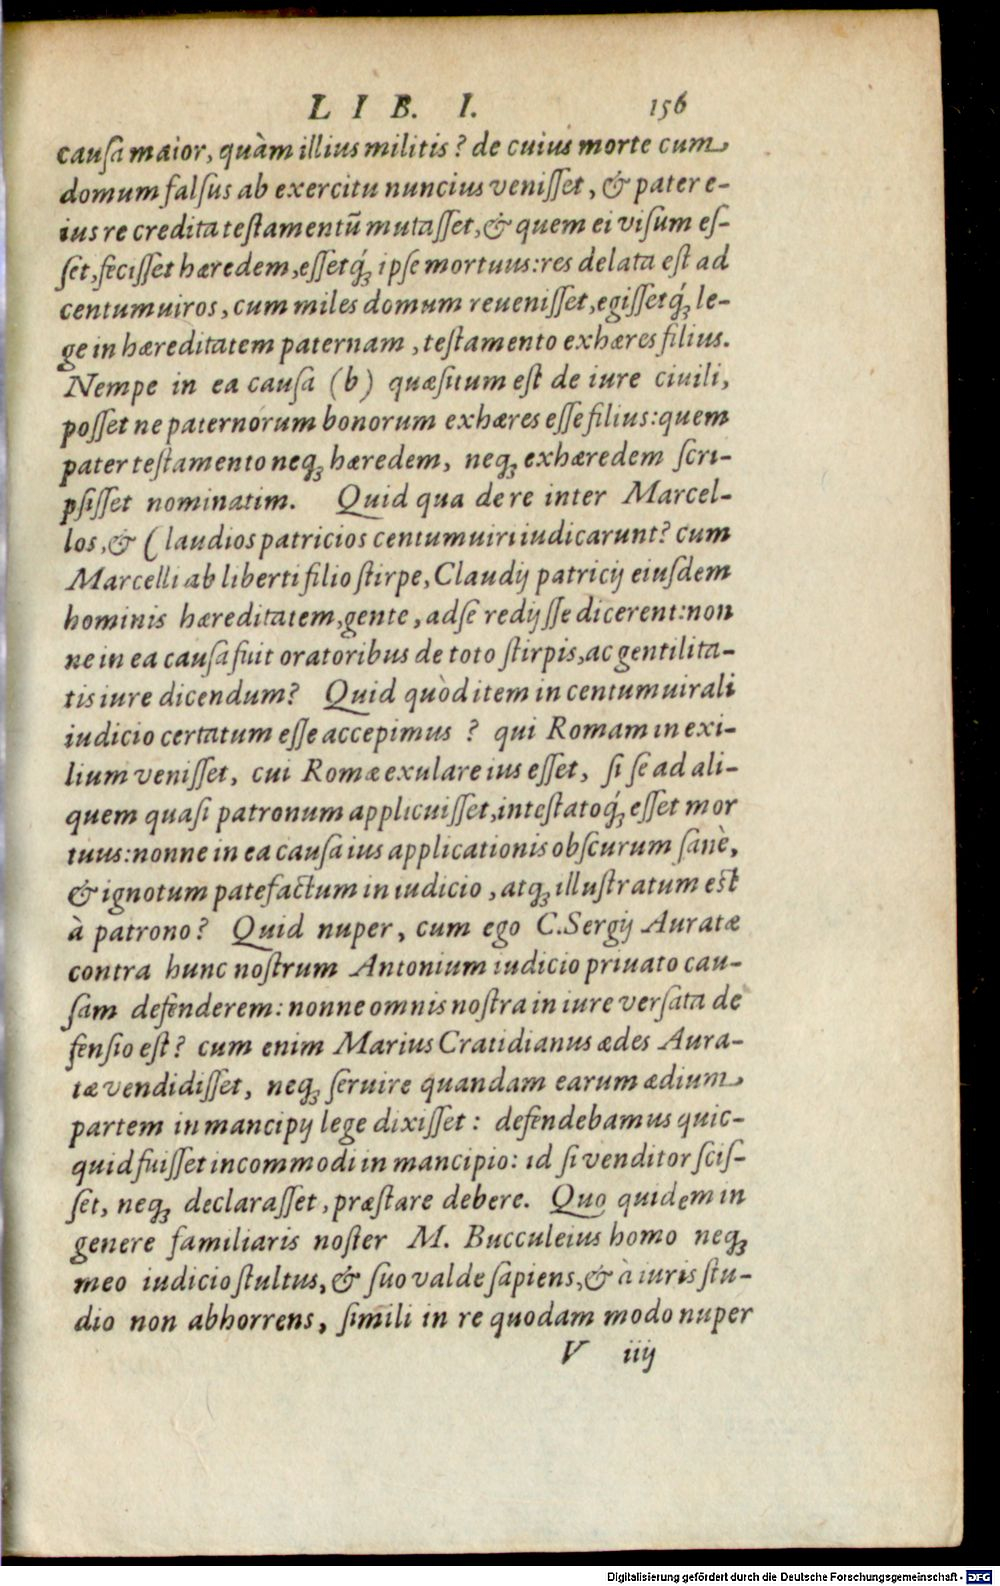 LIB. I. 156
cauſa maior, quàm illius militis? de cuius morte cum
domum falſus ab exercitu nuncius veniſſet, & pater e-
ius re credita teſtamentū mutaſſet, & quem ei viſum eſ-
ſet, feciſſet hæredem, eſſetq́ꝫ ipſe mortuus: res delata eſt ad
centumuiros, cum miles domum reueniſſet, egiſſetq́ꝫ le-
ge in hæreditatem paternam, teſtamento exhæres filius.
Nempe in ea cauſa (b) quæſitum eſt de iure ciuili,
poſſet ne paternorum bonorum exhæres eſſe filius: quem
pater teſtamento neqꝫ hæredem, neqꝫ exhæredem ſcri-
pſiſſet nominatim. Quid qua de re inter Marcel-
los, & Claudios patricios centumuiri iudicarunt? cum
Marcelli ab liberti filio ſtirpe, Claudij patricij eiuſdem
hominis hæreditatem, gente, ad ſe redijſſe dicerent: non
ne in ea cauſa fuit oratoribus de toto ſtirpis, ac gentilita-
tis iure dicendum? Quid quòd item in centumuirali
iudicio certatum eſſe accepimus ? qui Romam in exi-
lium veniſſet, cui Romæ exulare ius eſſet, ſi ſe ad ali-
quem quaſi patronum applicuiſſet, inteſtatoq́ꝫ eſſet mor
tuus: nonne in ea cauſa ius applicationis obſcurum ſanè,
& ignotum patefactum in iudicio, atqꝫ illuſtratum eſt
à patrono? Quid nuper, cum ego C. Sergij Auratæ
contra hunc noſtrum Antonium iudicio priuato cau-
ſam defenderem: nonne omnis noſtra in iure verſata de
fenſio eſt? cum enim Marius Cratidianus ædes Aura-
tæ vendidiſſet, neqꝫ ſeruire quandam earum ædium
partem in mancipij lege dixiſſet: defendebamus quic-
quid fuiſſet incommodi in mancipio: id ſi venditor ſciſ-
ſet, neqꝫ declaraſſet, præſtare debere. Quo quidem in
genere familiaris noſter M. Bucculeius homo neqꝫ
meo iudicio ſtultus, & ſuo valde ſapiens, & à iuris ſtu-
dio non abhorrens, ſimili in re quodam modo nuper
V iiij
Digitalisierung gefördert durch die Deutsche Forschungsgemeinschaft - DFG